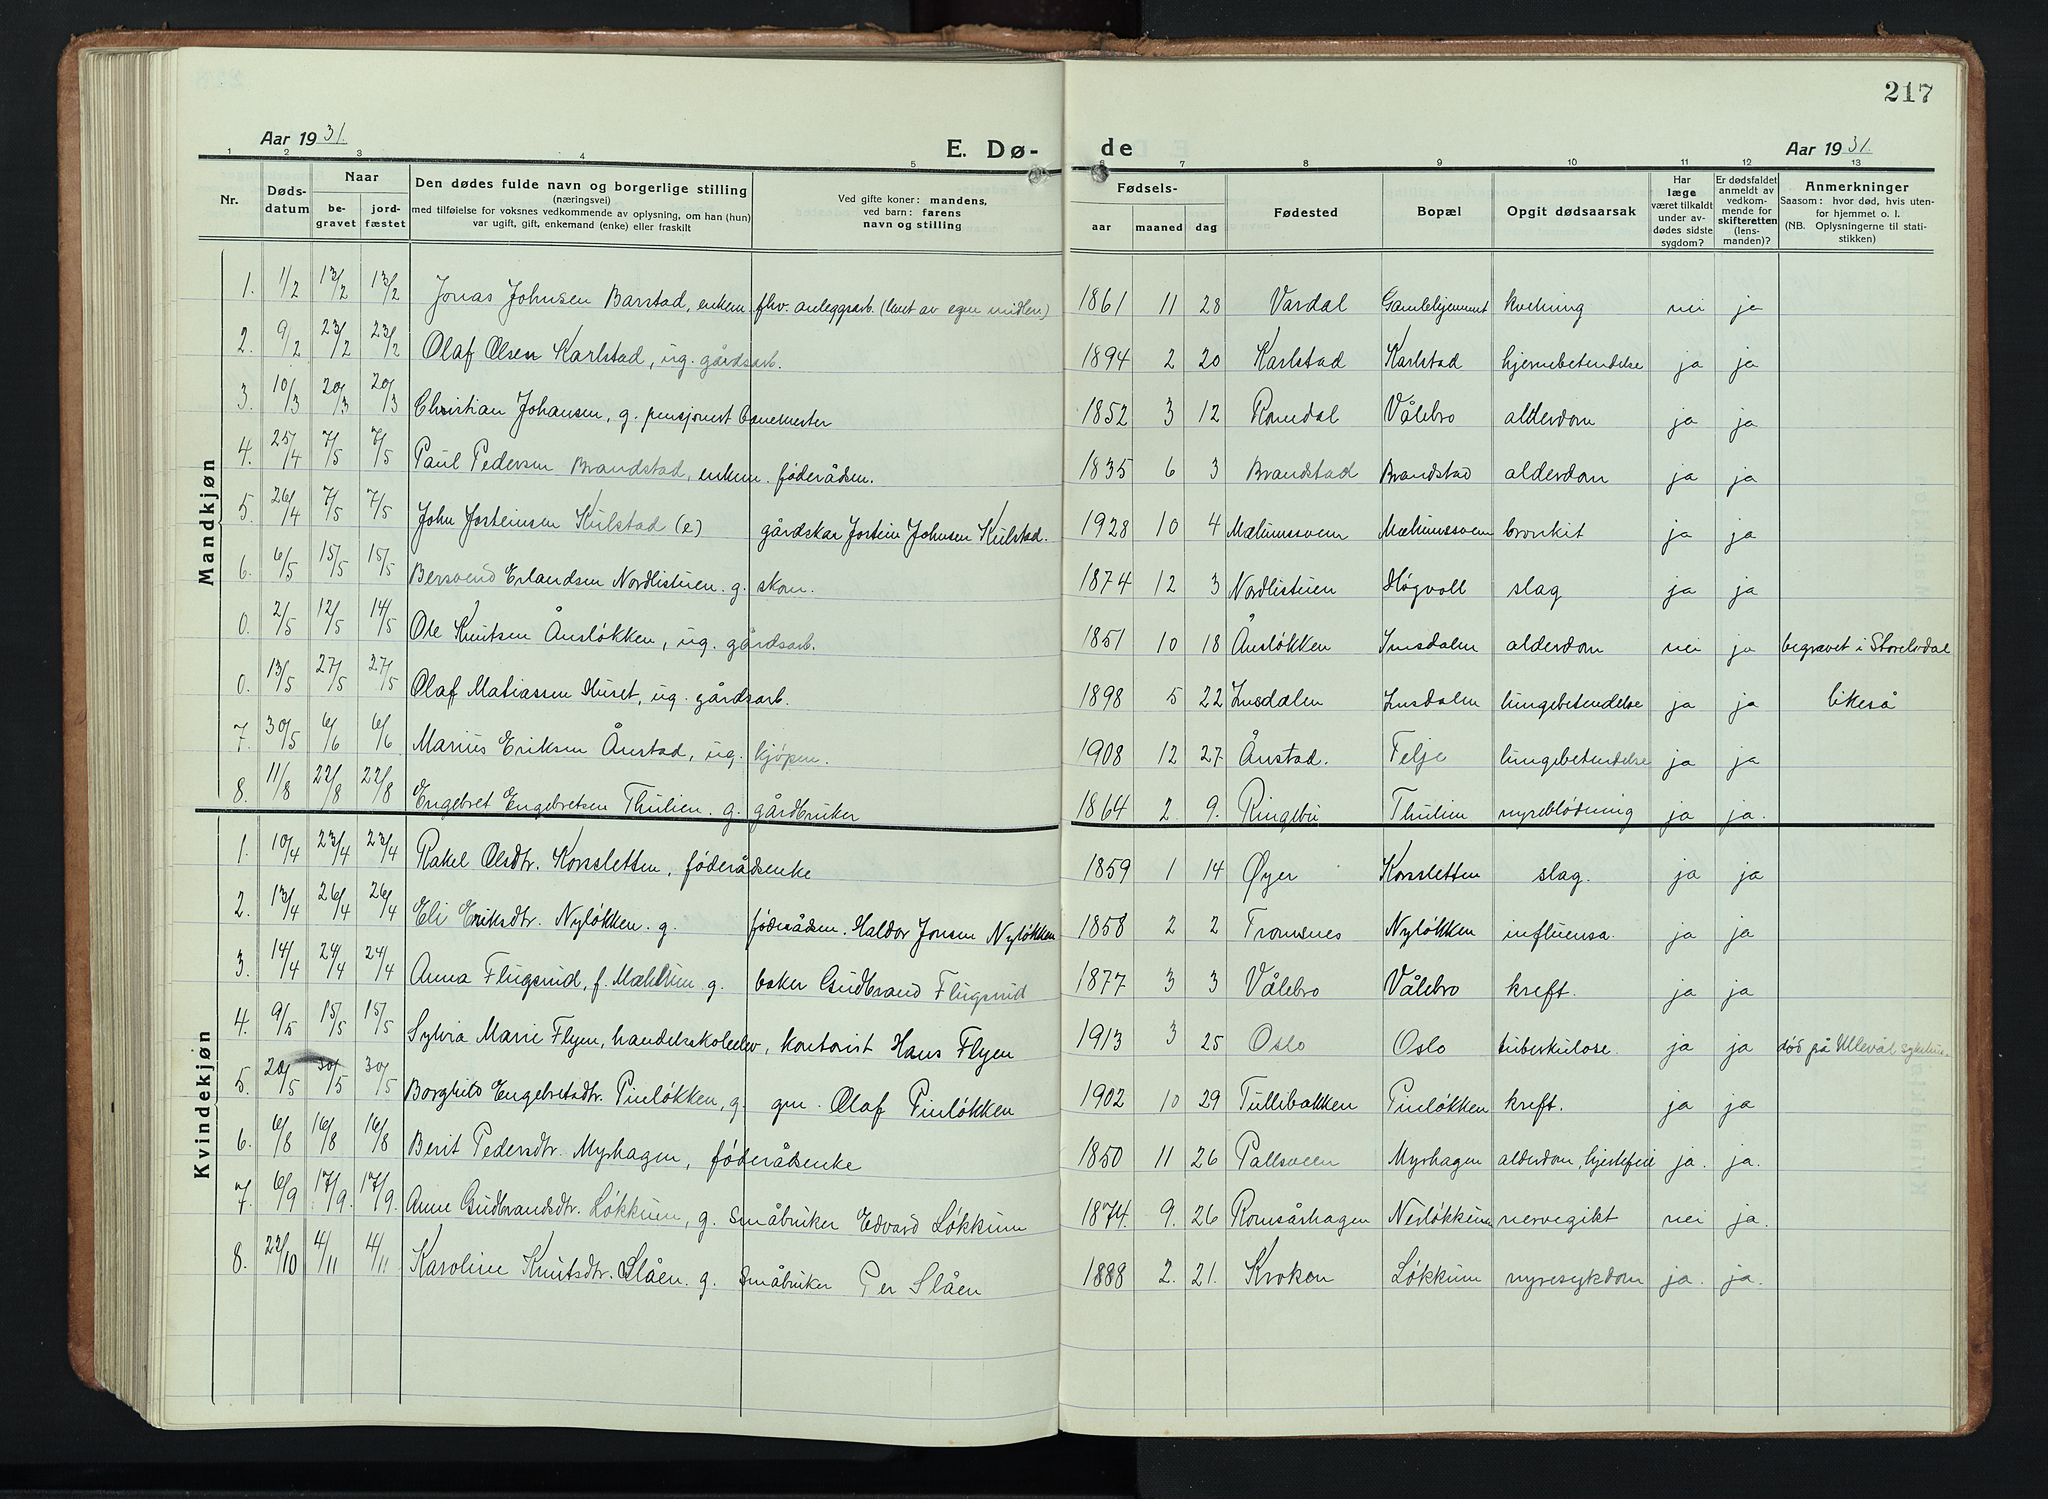 217
Aar 1931.
E. Dø- de
Aar 1931.
1 2 3 4 5 6 7 8 9 10 11 12 13
Nr.
Døds-datum
Naar
be-gravet
jord-fæstet
Den dødes fulde navn og borgerlige stilling
(næringsvei)
med tilføielse for voksnes vedkommende av oplysning, om han (hun)
var ugift, gift, enkemand (enke) eller fraskilt
Ved gifte koner: mandens,
ved barn: farens
navn og stilling
Fødsels-
aar maaned dag
Fødested
Bopæl
Opgit dødsaarsak
Har læge været tilkaldt under av-dødes sidste sygdom?
Er dødsfaldet anmeldt av vedkom-mende for skifteretten (lens-manden)?
Anmerkninger
Saasom: hvor død, hvis uten-for hjemmet o. l.
(NB. Oplysningerne til stati-stikken)
Mandkjøn
1. 1/2 13/2 13/2 Jonas Johnsen Barstad, enkem. fhv. anleggsarb. (levet av egne midler) 1861 11 28 Vardal Gamlehjemmet kvelning nei ja
2. 9/2 23/2 23/2 Olaf Olsen Karlstad, ug. gårdsarb. 1894 2 20 Karlstad Karlstad hjernebetendelse ja ja
3. 10/3 20/3 20/3 Christian Johansen, g. pensjonert banemester 1852 3 12 Romedal Vålebro alderdom ja ja
4. 25/4 7/5 7/5 Paul Pedersen Brandstad, enkem. føderådsm. 1835 6 3 Brandstad Brandstad alderdom ja ja
5. 26/4 7/5 7/5 John Josteinsen Kulstad (e) gårdskar Jostein Johnsen Kulstad. 1928 10 4 Mælumssveen Mælumssveen bronkit ja ja
6. 6/5 15/5 15/5 Bersvend Erlandsen Nordlistuen. g. skom. 1874 12 3 Nordlistuen Høgvoll slag ja ja
0. 2/5 12/5 14/5 Ole Knutsen Ånsløkken, ug. gårdsarb. 1851 10 18 Ånsløkken Imsdalen alderdom nei ja begravet i Storelvdal
0. 13/5 27/5 27/5 Olaf Matiassen Huset, ug. gårdsarb. 1898 5 22 Imsdalen Imsdalen lungebetendelse ja ja likeså
7. 30/5 6/6 6/6 Marius Eriksen Ånstad, ug. kjøpm. 1908 12 27 Ånstad. Felje lungebetendelse ja ja
8. 11/8 22/8 22/8 Engebret Engebretsen Thulien. g. gårdbruker 1864 2. 9. Ringebu Thulien nyreblødning ja ja.
Kvindekjøn
1. 10/4 23/4 23/4 Rakel Olsdtr. Korssletten, føderådsenke 1859 1 14 Øyer Korssletten slag. ja ja
2. 13/4 26/4 26/4 Eli Eriksdtr. Nyløkken. g. føderådsm. Haldor Jonsen Nyløkken 1858 2 2 Tromsnes Nyløkken influensa. ja ja
3. 14/4 24/4 24/4 Anna Flugsrud, f. Mælum. g. baker Gudbrand Flugsrud 1877 3 3 Vålebro Vålebro kreft. ja ja
4. 9/5 15/5 15/5 Sylvia Marie Flyen, handelsskoleelev, kontorist Hans Flyen 1913 3 25 Oslo Oslo tuberkulose. ja ja død på Ullevål sykehus.
5. 20/5 30/5 30/5 Borghild Engebretsdtr. Pinløkken, g. gm. Olaf Pinløkken 1902 10 29 Tullibakken Pinløkken kreft. ja ja
6. 6/8 16/8 16/8 Berit Pedersdtr. Myrhagen, føderådsenke 1850 11 26 Pallsveen Myrhagen alderdom, hjertefeil ja. ja.
7. 6/9 17/9. 17/9. Anne Gudbrandsdtr. Løkkum, g. småbruker Edvard Løkkum 1874. 9. 26 Romsåshagen Nerløkkum nervegikt nei ja.
8. 22/10 4/11 4/11 Karoline Knutsdtr. Slåen. g. småbruker Per Slåen 1888 2. 21. Kroken Løkkum nyresykdom ja. ja.